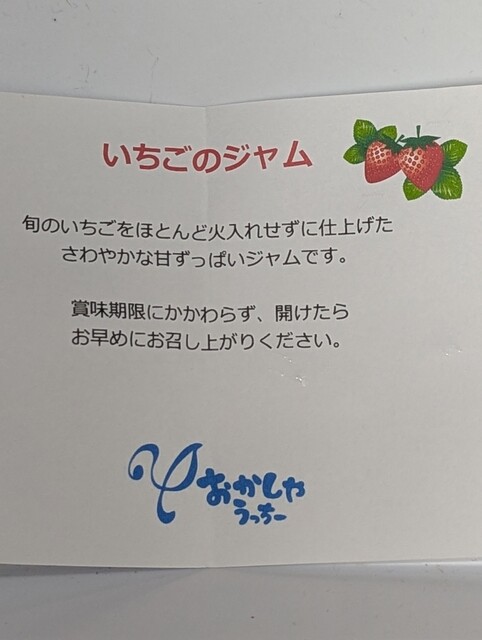 いちごのジャム
旬のいちごをほとんど火入れせずに仕上げた
さわやかな甘ずっぱいジャムです。
賞味期限にかかわらず、開けたら
お早めにお召し上がりください。
おかしや
うっちー